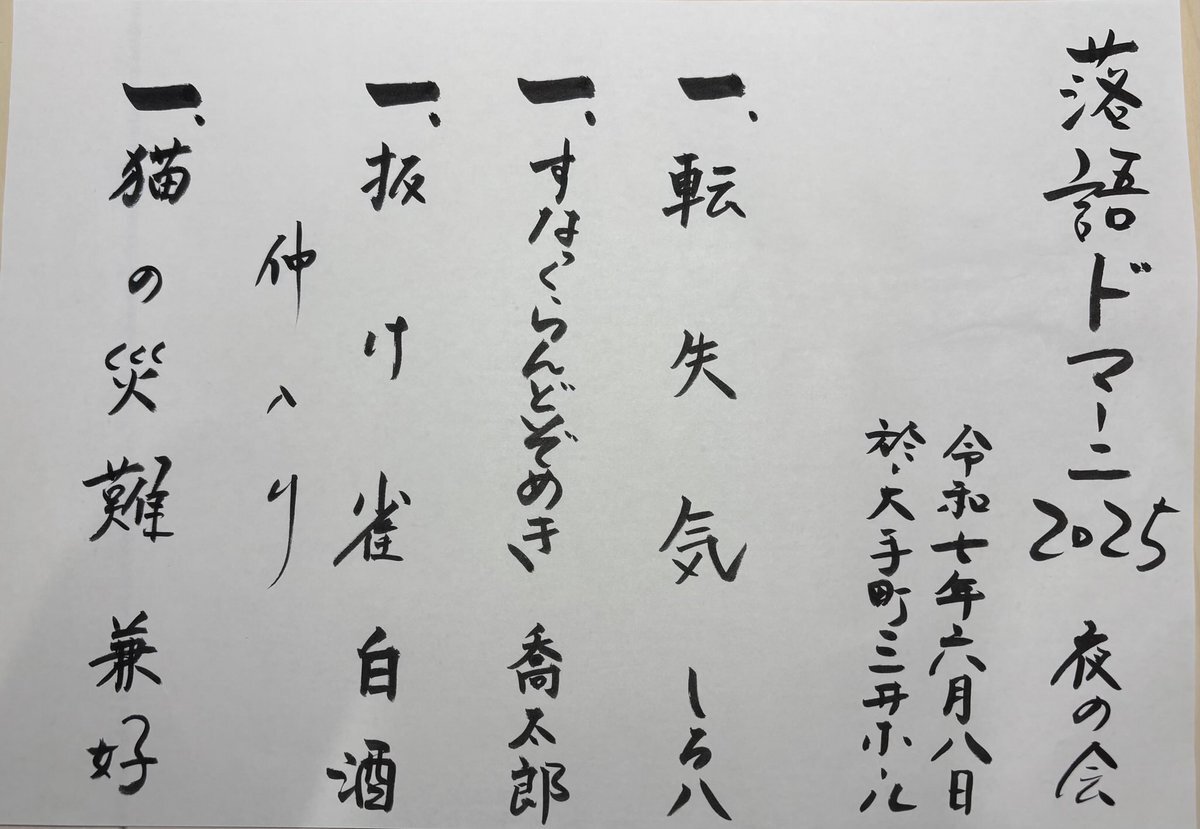 落語ドマーニ2025 夜の会
令和七年六月八日
於・大手町三井ホール
一、転失気 しろ八
一、すなっくらんどぞめき 喬太郎
一、抜け雀 白酒
仲入り
一、猫の災難 兼好